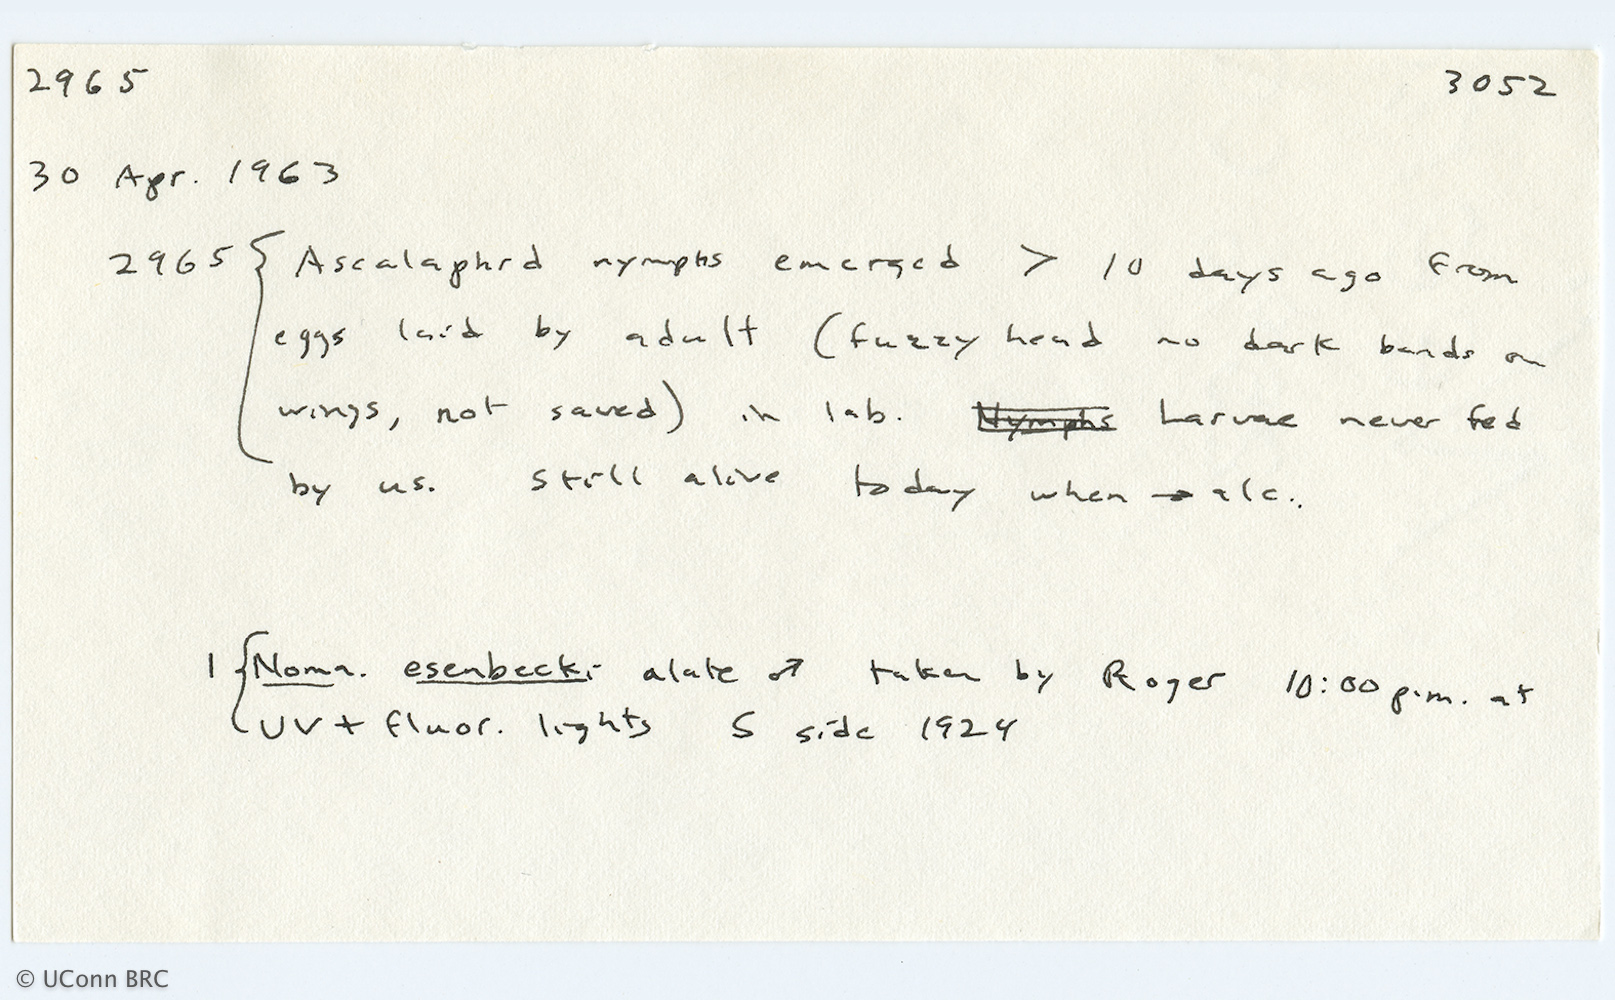 2965 3052
30 Apr. 1963
2965 { Ascalaphid nymphs emerged > 10 days ago from
eggs laid by adult (fuzzy head no dark bands on
wings, not saved) in lab. Nymphs Larvae never fed
by us. Still alive today when → alc.
1 { Nomn. esenbecki alate ♂ taken by Roger 10:00 p.m. at
UV + fluor. lights S side 1924
© UConn BRC